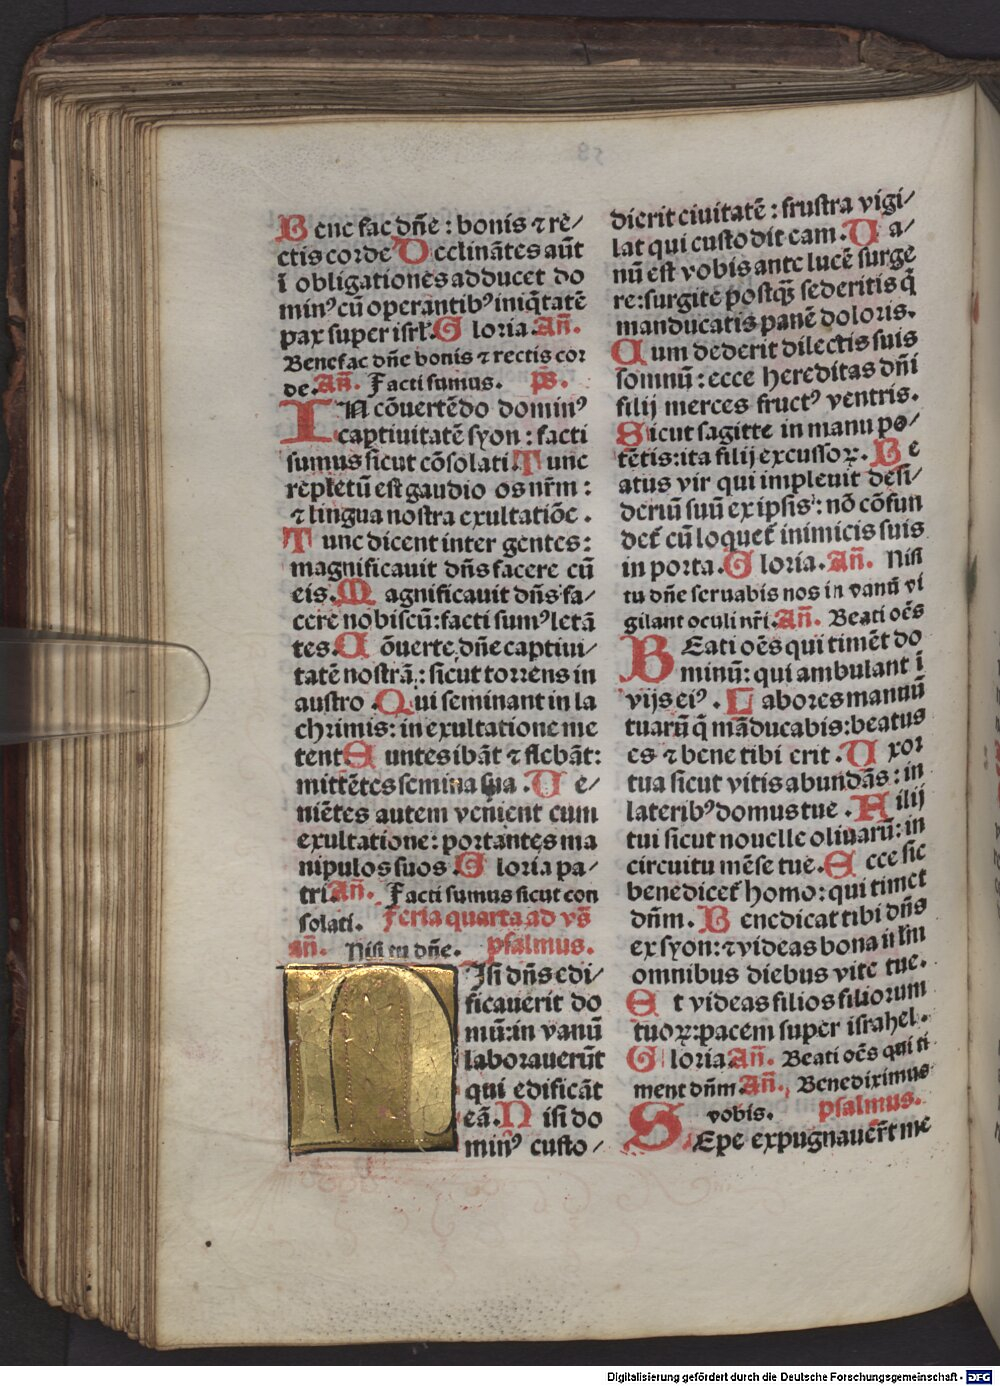 58
Bene fac dn̄e : bonis ⁊ re-/
ctis corde Declinātes aūt
ī obligationes adducet do
minꝰ cū operantibꝰ iniq̄tatē
pax super isrl̄. Gloria. An̄.
Benefac dn̄e bonis ⁊ rectis cor
de. An̄. Facti sumus. ps.
IN cōuertēdo dominꝰ
captiuitatē syon : facti
sumus sicut cōsolati. Tunc
repletū est gaudio os nr̄m :
⁊ lingua nostra exultatiōe .
Tunc dicent inter gentes :
magnificauit dn̄s facere cū
eis. Magnificauit dn̄s fa-/
cere nobiscū : facti sumꝰ letā
tes. Cōuerte dn̄e captiui/
tatē nostrā : sicut torrens in
austro . Qui seminant in la
chrimis : in exultatione me
tent Euntes ibāt ⁊ flebāt :
mittētes semina sua . Ue/
niētes autem venient cum
exultatione : portantes ma
nipulos suos. Gloria pa/
tri. An̄. Facti sumus sicut con
solati. Feria quarta ad vs̄
an̄. Nisi tu dn̄e. psalmus.
NIsi dn̄s edi/
ficauerit do
mū : in vanū
laborauerūt
qui edificāt
eā. Nisi do
minꝰ custo/
dierit ciuitatē : frustra vigi/
lat qui custodit eam. Ua/
nū est vobis ante lucē surge
re : surgite postq̄ꝫ sederitis q̄
manducatis panē doloris.
Cum dederit dilectis suis
somnū : ecce hereditas dn̄i
filij merces fructꝰ ventris.
Sicut sagitte in manu po/
tētis : ita filij excussoꝝ. Be
atus vir qui impleuit desi/
deriū suū ex ipsis : nō cōfun
det̄ cū loquet̄ inimicis suis
in porta. Gloria. An̄. Nisi
tu dn̄e seruabis nos in vanū vi
gilant oculi nr̄i. An̄. Beati oēs
BEati oēs qui timēt do
minū : qui ambulant ī
vijs eiꝰ . Labores manuū
tuarū q̄ māducabis : beatus
es ⁊ bene tibi erit . Uxor
tua sicut vitis abundās : in
lateribꝰ domus tue . Filij
tui sicut nouelle oliuarū : in
circuitu mēse tue. Ecce sic
benedicet̄ homo : qui timet
dn̄m. Benedicat tibi dn̄s
ex syon : ⁊ videas bona ilr̄m
omnibus diebus vite tue.
Et videas filios filiorum
tuoꝝ : pacem super israhel.
Gloria An̄. Beati oēs qui ti
ment dn̄m An̄. Benediximus
vobis. psalmus.
SEpe expugnauer̄t me
Digitalisierung gefördert durch die Deutsche Forschungsgemeinschaft - DFG